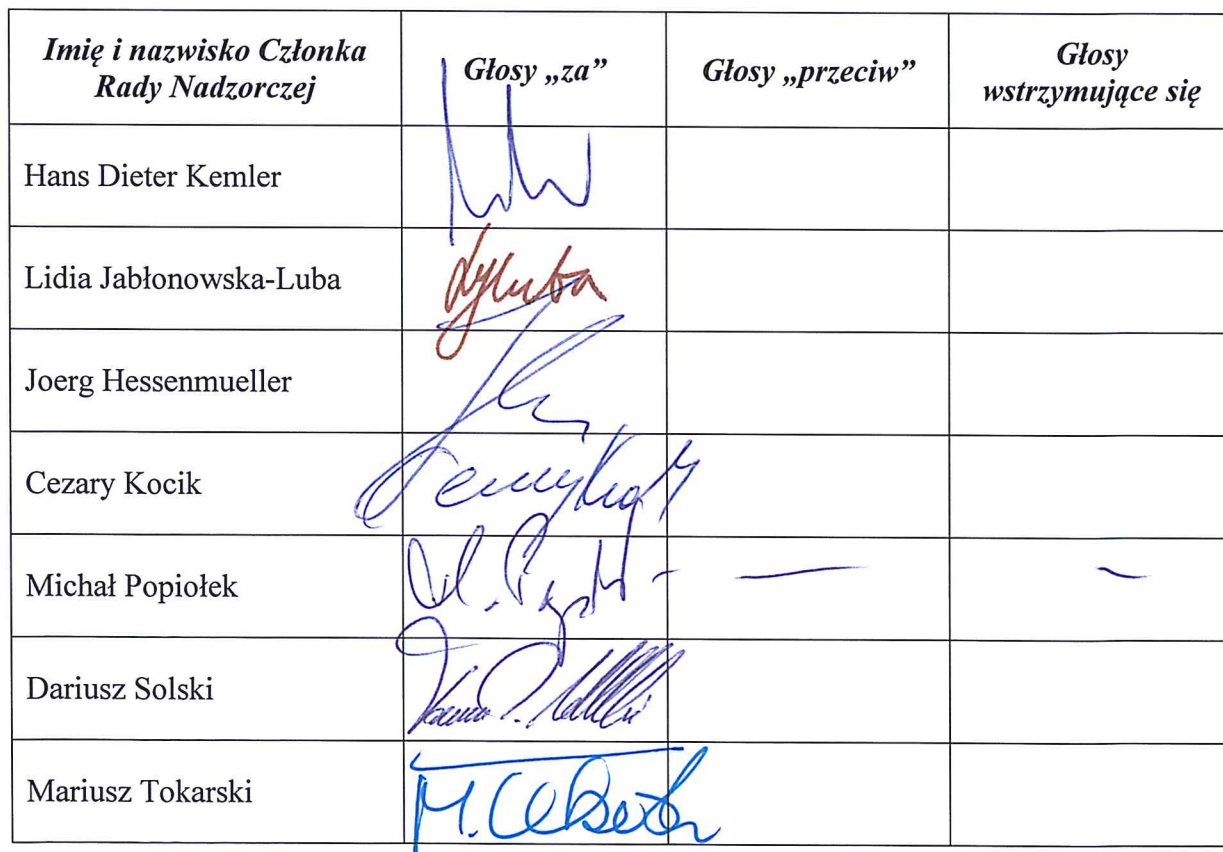 Imię i nazwisko Członka
Rady Nadzorczej
Głosy „za”
Głosy „przeciw”
Głosy
wstrzymujące się
Hans Dieter Kemler
Lidia Jabłonowska-Luba
Joerg Hessenmueller
Cezary Kocik
Michał Popiołek
Dariusz Solski
Mariusz Tokarski